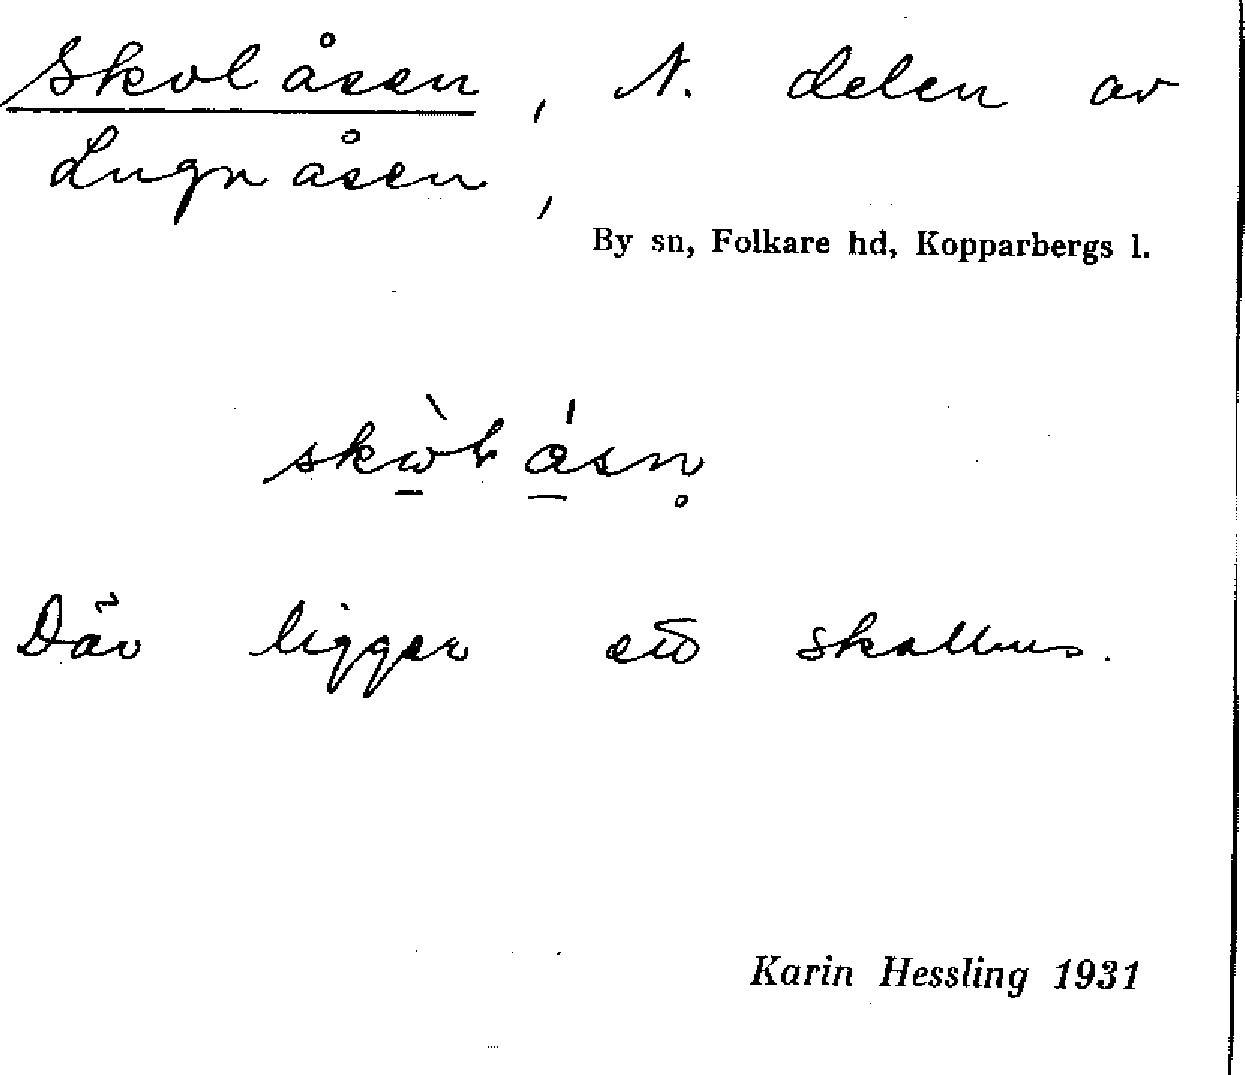 Skolåsen, N. delen av
Lugnåsen,
By sn, Folkare hd, Kopparbergs l.
Där ligger ett skolhus.
Karin Hessling 1931